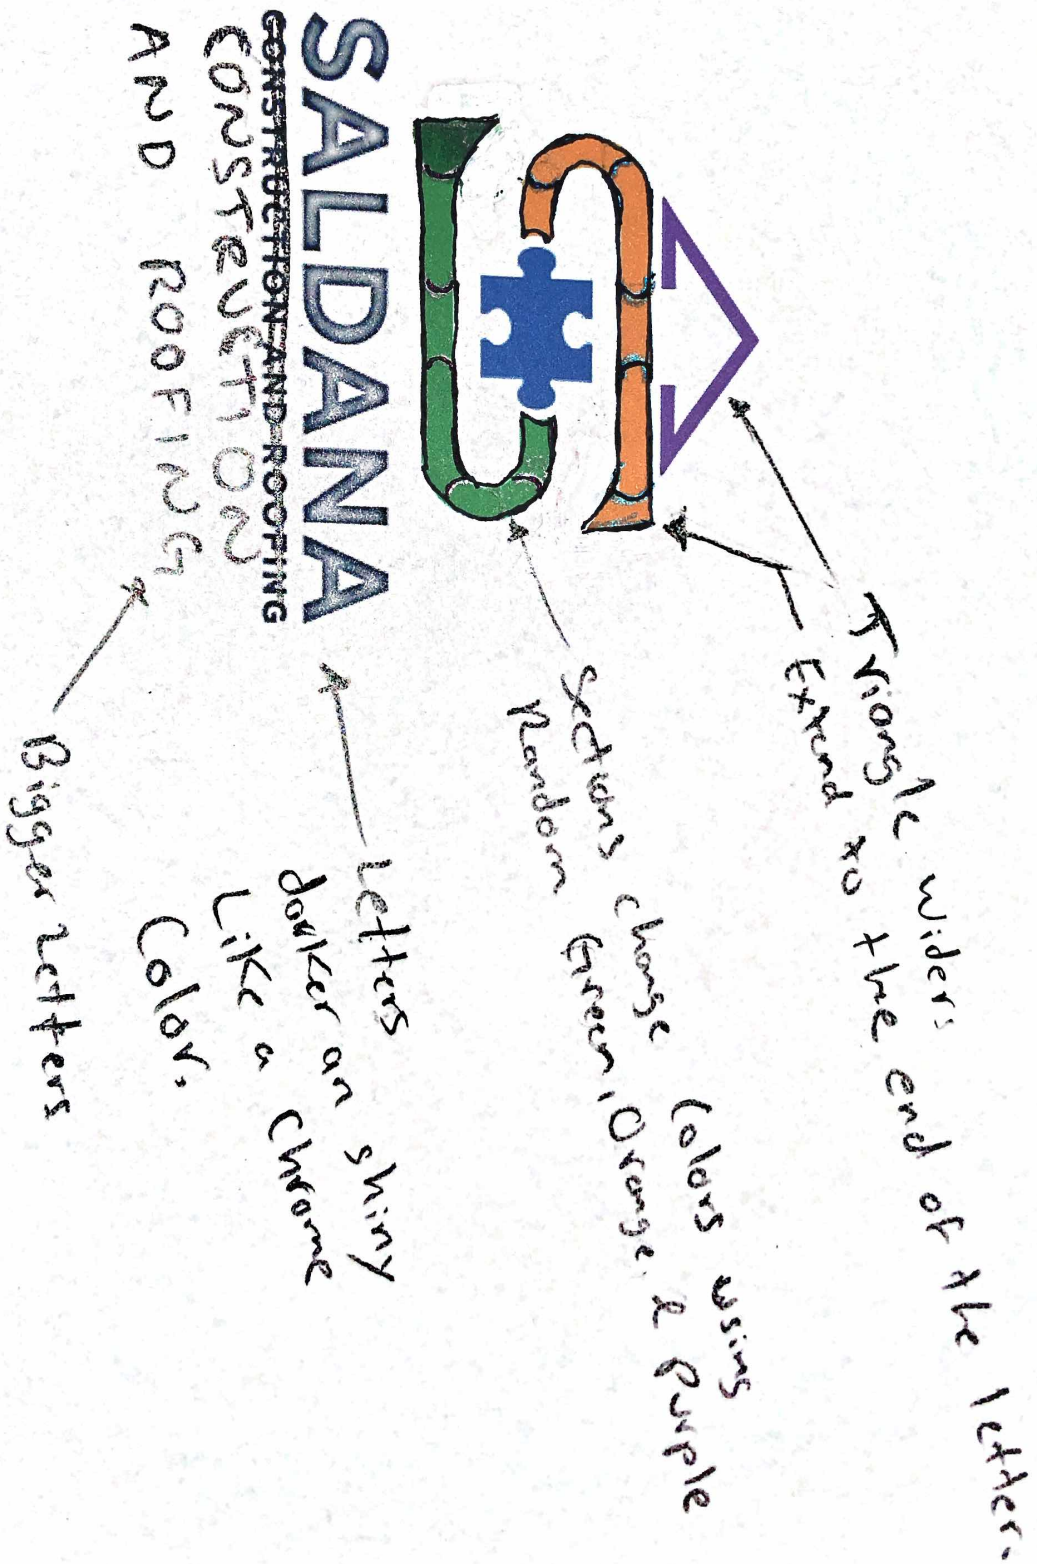 Triangle wider.
Extend to the end of the letter.
Sections change Colors using
Random Green, Orange, & Purple
SALDANA
CONSTRUCTION AND ROOFING
CONSTRUCTION
AND ROOFING
Letters
darker an shiny
Like a Chrome
Color.
Bigger Letters